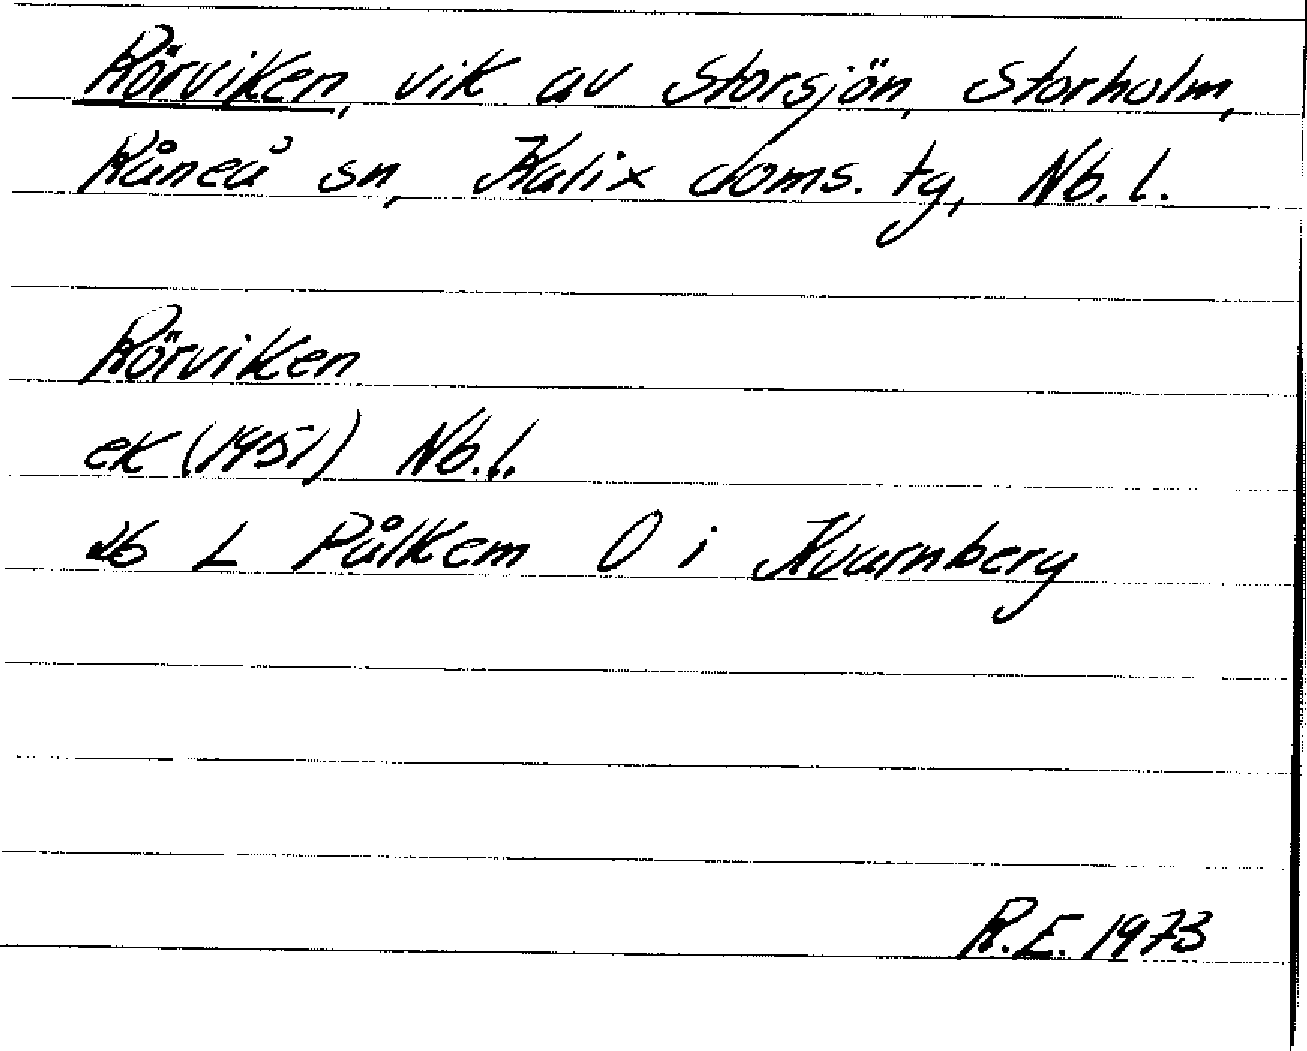 Rörviken, vik av Storsjön, Storholm,
Råneå sn, Kalix doms. tg, Nb. l.
Rörviken
ek (1951) Nb.l.
db L Pålkem O i Kvarnberg
R.E. 1973